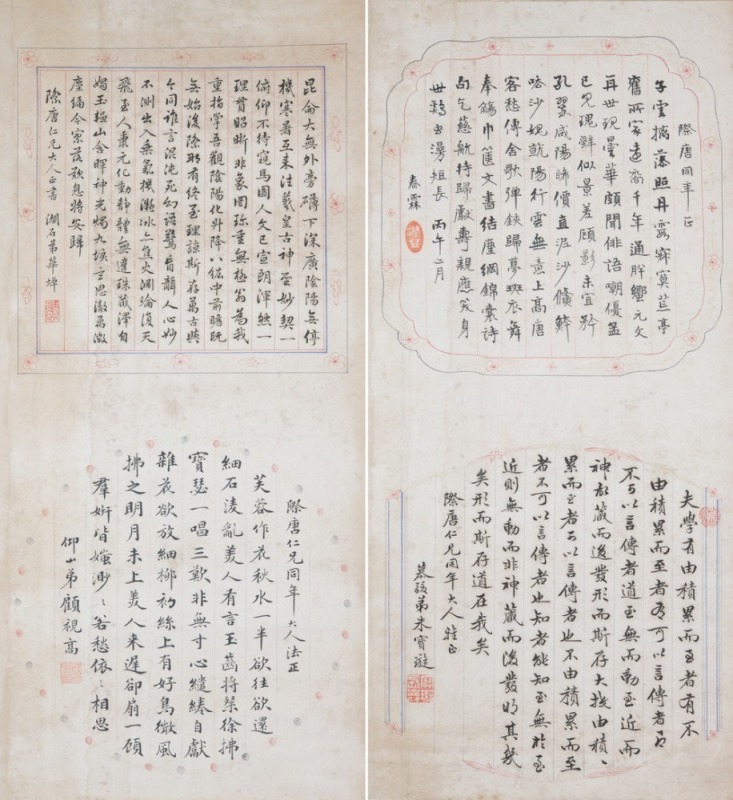 際唐同年 正
子雲摛藻照丹霄寂寞亭
舊所家遠裔千年通元文
再世現曇華頗聞俳語嘲優孟
已見瑰辭似景差顧影未宜矜
孔翠咸陽時價直泥沙
沙陽行雲無意上高唐
客愁傳舍歌彈鋏歸夢斑衣舞
奉觴巾篋文書結塵網錦囊詩
句乞慈航待歸獻壽親應笑身
世鷄虫漫短長 丙午二月
春霖
夫學有由積累而至者有不
由積累而至者有可以言傳者有
不可以言傳者道至無而動至近而
神故藏而遂發形而斯存大抵由積〻
累而至者可以言傳者也不由積累而至
者不可以言傳者也知者能知至無於至
近則無動而非神藏而後發明其幾
矣形而斯存道在我矣
際唐仁兄同年大人雅正
弟朱寶璇
昆侖大無外旁礴下深廣陰陽無停
機寒暑互來往羲皇古神聖妙契一
俯仰不待窺馬圖人文已宣朗渾然一
理貫昭晰非象罔珍重無極翁為我
重指掌吾觀陰陽化升降八紘中前瞻既
無始後際那有終至理諒斯存萬古與
今同誰言混沌死幻語驚盲聾人心妙
不測出入乘氣機凝冰亦焦火淵淪復天
飛至人秉元化動靜體無違珠藏澤自
媚玉韞山含暉神光燭九垓玄思徹萬微
塵編今寥落歎息將安歸
際唐仁兄大人正書 澗石弟華焯
際唐仁兄同年大人法正
芙蓉作衣秋水一半欲往欲還
細石淩亂美人有言玉齒將粲徐拂
寶瑟一唱三歎非無寸心繾綣自獻
雜花欲放細柳初絲上有好鳥微風
拂之明月未上美人來遲卻扇一顧
羣妍皆媸渺〻若愁依〻相思
仰山弟顧視高